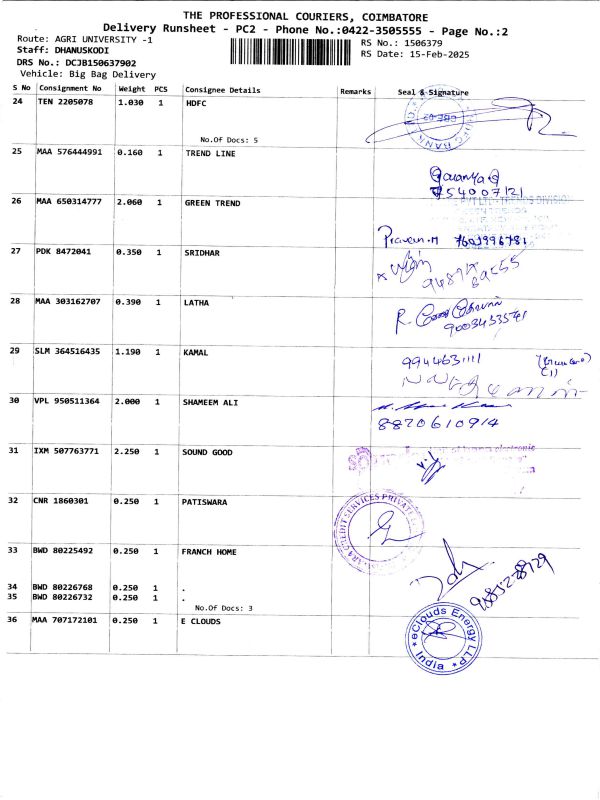 THE PROFESSIONAL COURIERS, COIMBATORE
Delivery Runsheet - PC2 - Phone No.:0422-3505555 - Page No.:2
Route: AGRI UNIVERSITY -1
RS No.: 1506379
Staff: DHANUSKODI
RS Date: 15-Feb-2025
DRS No.: DCJB150637902
Vehicle: Big Bag Delivery
S No Consignment No Weight PCS Consignee Details Remarks Seal & Signature
24 TEN 2205078 1.030 1 HDFC
No.Of Docs: 5
25 MAA 576444991 0.160 1 TREND LINE
26 MAA 650314777 2.060 1 GREEN TREND
Praveen.M
27 PDK 8472041 0.350 1 SRIDHAR
28 MAA 303162707 0.390 1 LATHA
9003453541
29 SLM 364516435 1.190 1 KAMAL
9944631111
30 VPL 950511364 2.000 1 SHAMEEM ALI
8870610914
31 IXM 507763771 2.250 1 SOUND GOOD
32 CNR 1860301 0.250 1 PATISWARA
CREDIT SERVICES PRIVATE
33 BWD 80225492 0.250 1 FRANCH HOME
34 BWD 80226768 0.250 1 .
35 BWD 80226732 0.250 1 .
No.Of Docs: 3
36 MAA 707172101 0.250 1 E CLOUDS
eClouds Energy LLP
India